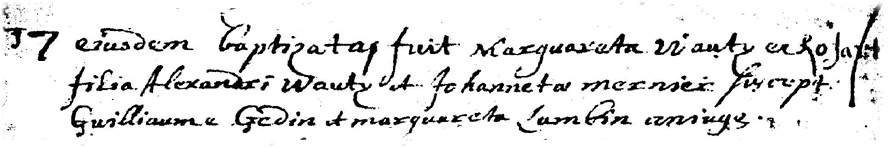 17 eiusdem baptizatas fuit Marguareta Wauty ex
filia Alexandri Wauty et Johanneta mernier suscept
Guilliaume Gedin et marguareta Lambin coniuge.